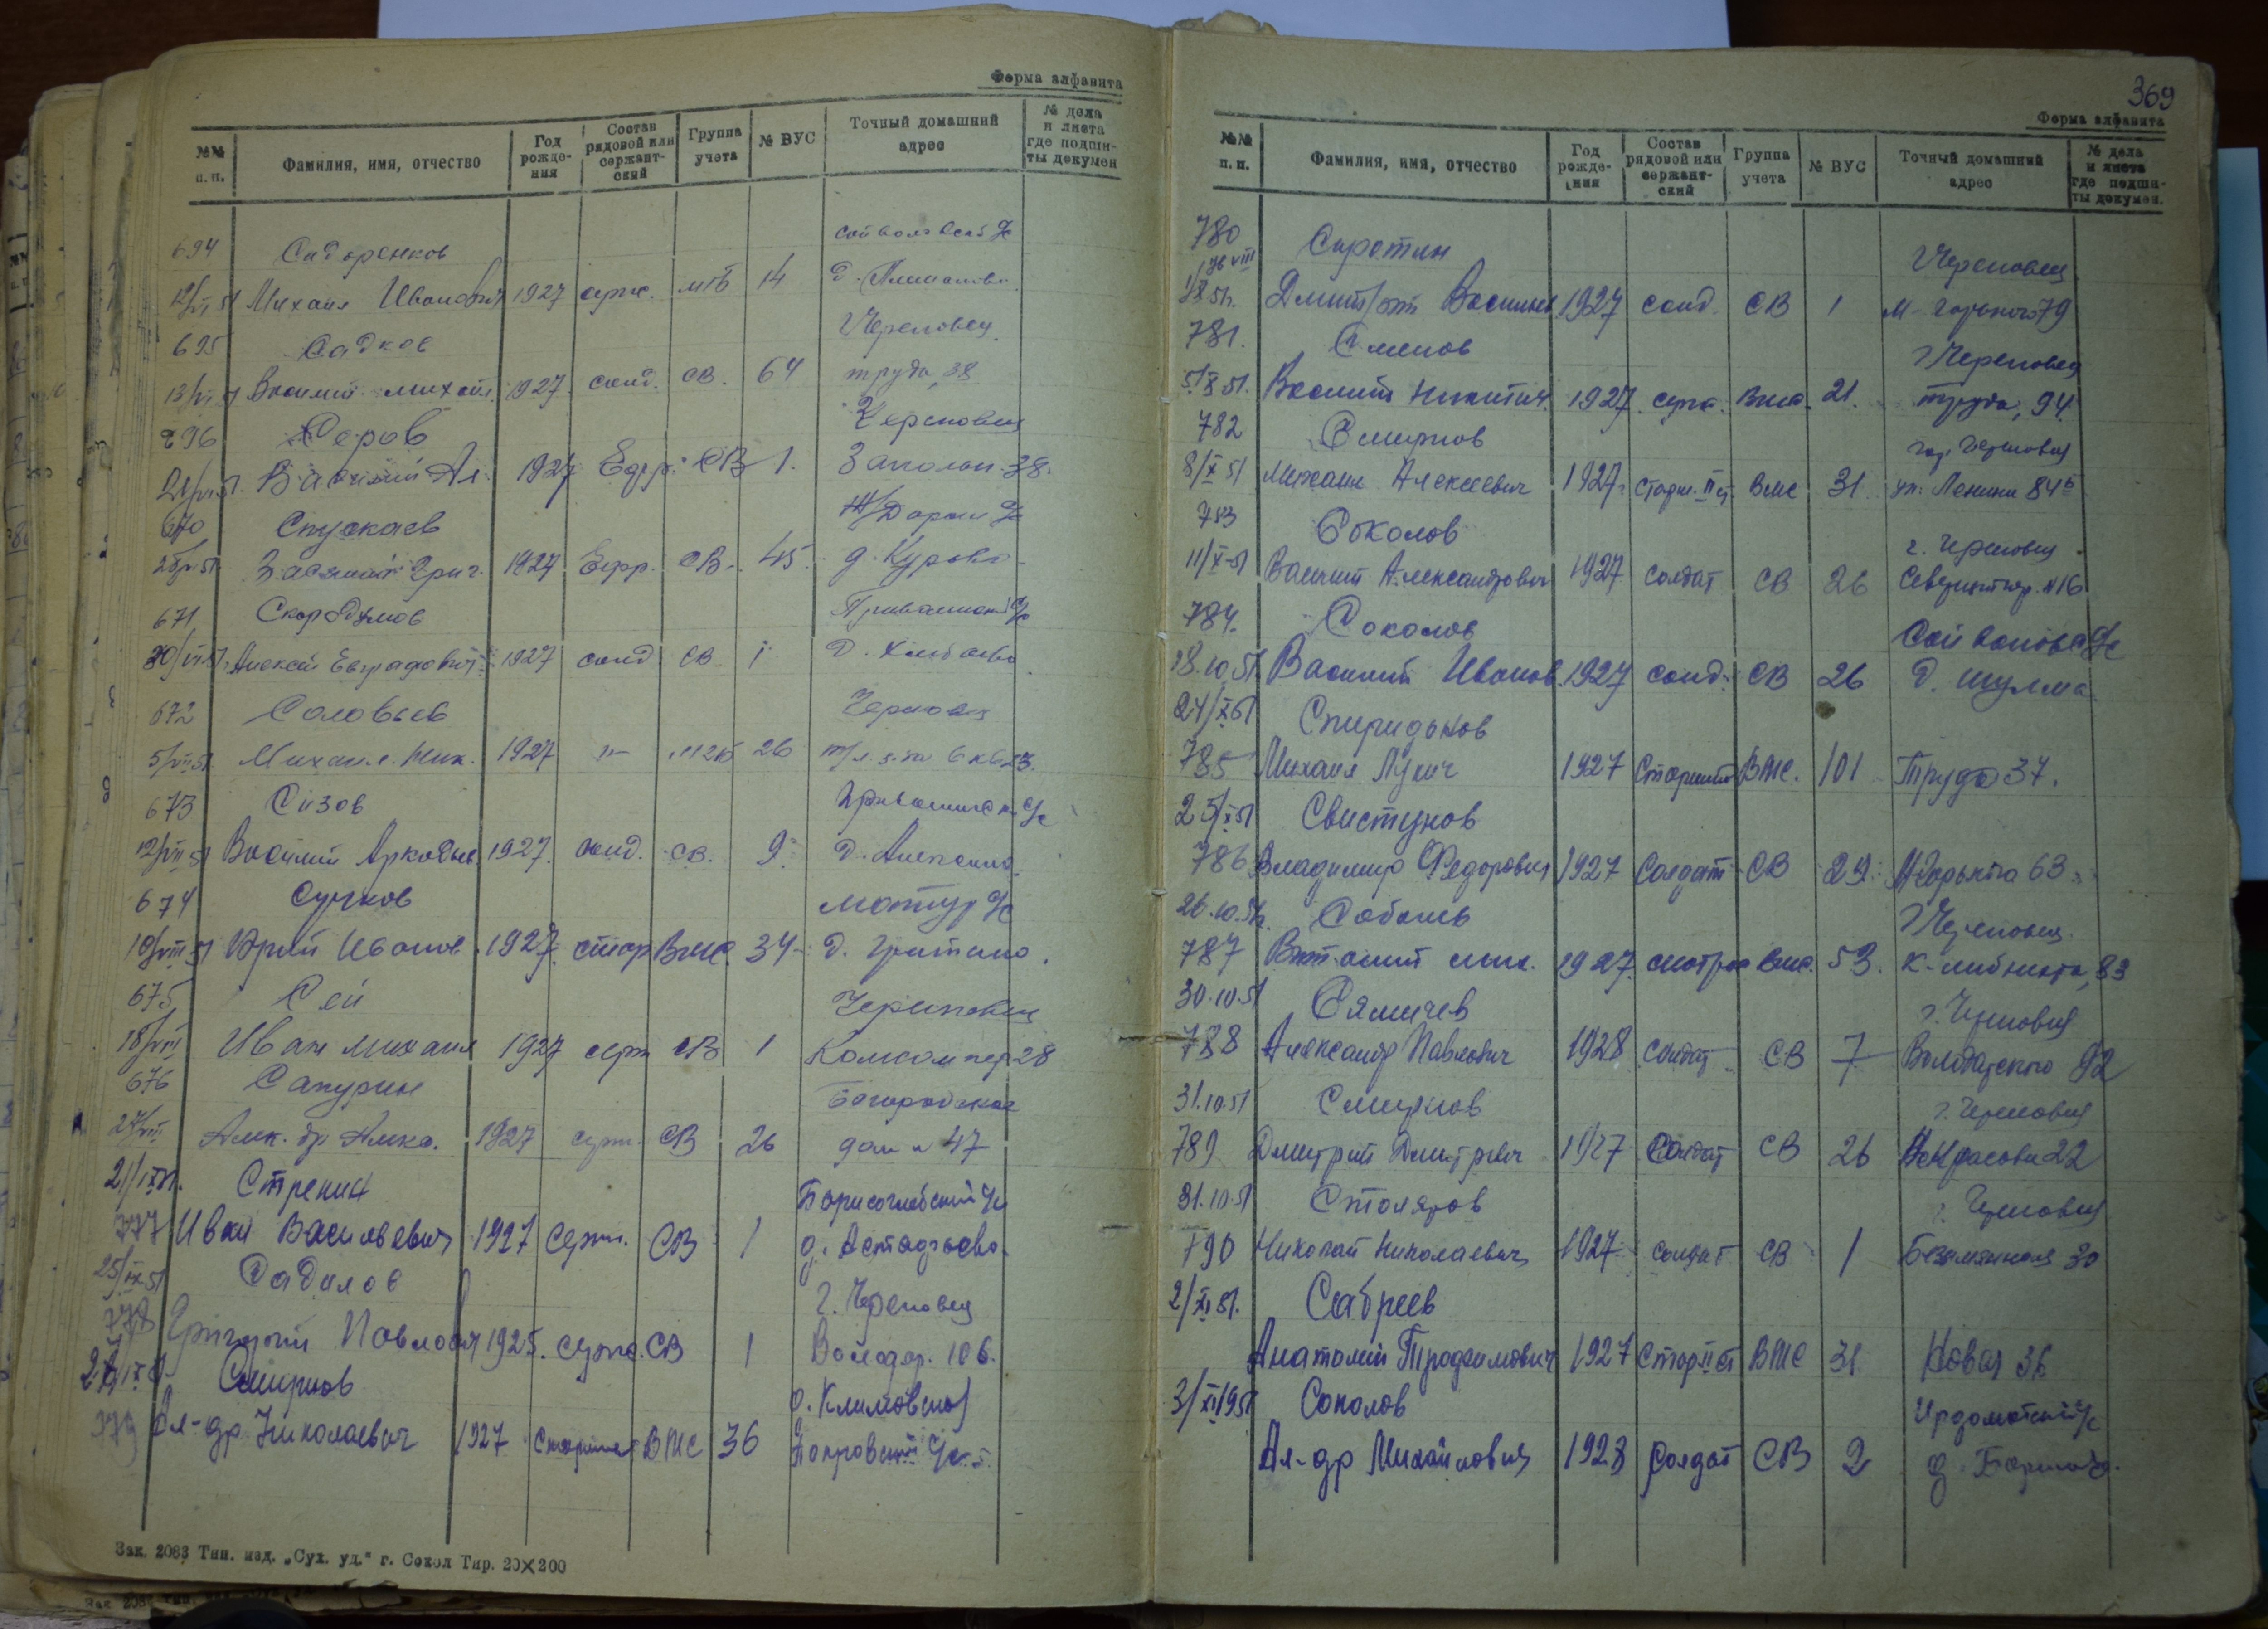 Форма алфавита
№№ п.п. Фамилия, имя, отчество Год рожде-ния Состав рядовой или сержант-ский Группа учета № ВУС Точный домашний адрес № дела и листа где подши-ты докумен
694 Сидоренков
12/VII 51 Михаил Иванович 1927 серж. 14 д.
695 Садков Череповец
13/VII 51 Василий Михайл. 1927 солд. СВ. 64 труда, 38
696 Серов Череповец
Василий Ал. 1927 Ефр. СВ 1. 38.
670 Спускаев
Василий Григ. 1927 Ефр. СВ. 45. д. Курово
671 Скородумов
30/VII 51 Алексей Евграфович 1927 солд СВ 1 д.
672 Соловьев Череповец
5/VIII 51 Михаил Ник. 1927 26
673 Сизов с/с
12/VIII 51 Василий Аркадьев. 1927. солд. СВ. 9 д.
674 Сучков с/с
Юрий Иванов. 1927. стар ВМС. 34 д.
675 Сей Череповец
18/VIII Иван Михаил 1927 серж СВ 1 Комсом пер 28
676 Сапурин Богородская
27/VIII 1927 серж. СВ 26 дом № 47
21/IX 51. Стренин Борисоглебский с/с
777 Иван Васильевич 1927 Серж. СВ 1 д. Астафьево
25/IX 51 Садилов г. Череповец
778 Григорий Павлович 1925. серж. СВ 1 Володар. 106.
Смирнов д. Климовская
779 Ал-др Николаевич 1927 Старшина ВМС 36 Покровский с/с
Зак. 2083 Тип. изд. „Сух. уд.“ г. Сокол Тир. 20×200
369
Форма алфавита
№№ п.п. Фамилия, имя, отчество Год рожде-ния Состав рядовой или сержант-ский Группа учета № ВУС Точный домашний адрес № дела и листа где подши-ты докумен.
780 Сиротин Череповец
Васильев. 1927 солд. СВ 1 М. Горького 79
781. Семенов г. Череповец
5/X 51. Василий Никитич. 1927. серж. Вмс. 21. труда, 94.
782 Смирнов гор. Череповец
8/X 51 Михаил Алексеевич 1927. Старш. II ст. Вмс 31 ул. Ленина 84б
783 Соколов г. Череповец
11/X-51 Василий Александрович 1927 солдат СВ 26 №16
784. Соколов с/с
18.10.51. Василий Иванов. 1927 солд. СВ 26 д. Шулма
24/X 51 Спиридонов
785 Михаил Лукич 1927 Старшина ВМС. 101 Труда 37.
25/X 51 Свистунов
786 Владимир Федорович 1927 Солдат СВ 29. М Горького 63
26.10.51г. Соболев г. Череповец.
787 Виталий 1927. матрос Вмс. 53. К-Либкнехта, 83
30.10.51 Сямичев г. Череповец
788 Александр Павлович 1928 солдат СВ 7 Володарского 92
31.10.51 Смирнов г. Череповец
789 Дмитрий Дмитриевич 1927 Солдат СВ 26 Некрасова 22
31.10.51 Столяров г. Череповец
790 Николай Николаевич 1927 солдат СВ 1 Безымянная 30
2/XI 51. Сабреев
Анатолий Трофимович 1927 Стар II ст ВМС 31 Новая 36
3/XI 1951 Соколов Ирдоматский с/с
Ал-др Михайлович 1928 Солдат СВ 2 д.